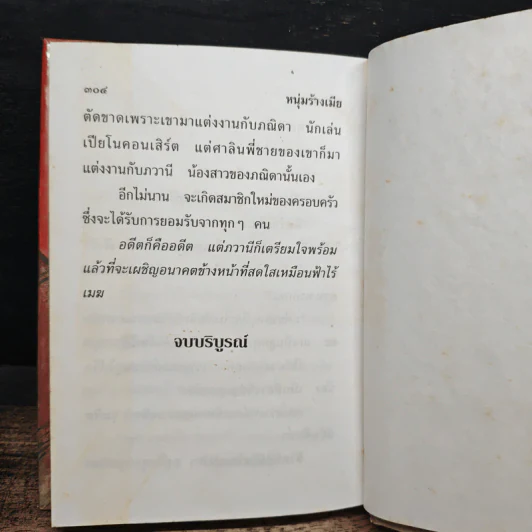 ๓๐๔
หนุ่มร้างเมีย
ตัดขาดเพราะเขามาแต่งงานกับภณิดา นักเล่น
เปียโนคอนเสิร์ต แต่ศาลินพี่ชายของเขาก็มา
แต่งงานกับภวานี น้องสาวของภณิดานั้นเอง
อีกไม่นาน จะเกิดสมาชิกใหม่ของครอบครัว
ซึ่งจะได้รับการยอมรับจากทุกๆ คน
อดีตก็คืออดีต แต่ภวานีก็เตรียมใจพร้อม
แล้วที่จะเผชิญอนาคตข้างหน้าที่สดใสเหมือนฟ้าไร้
เมฆ
จบบริบูรณ์